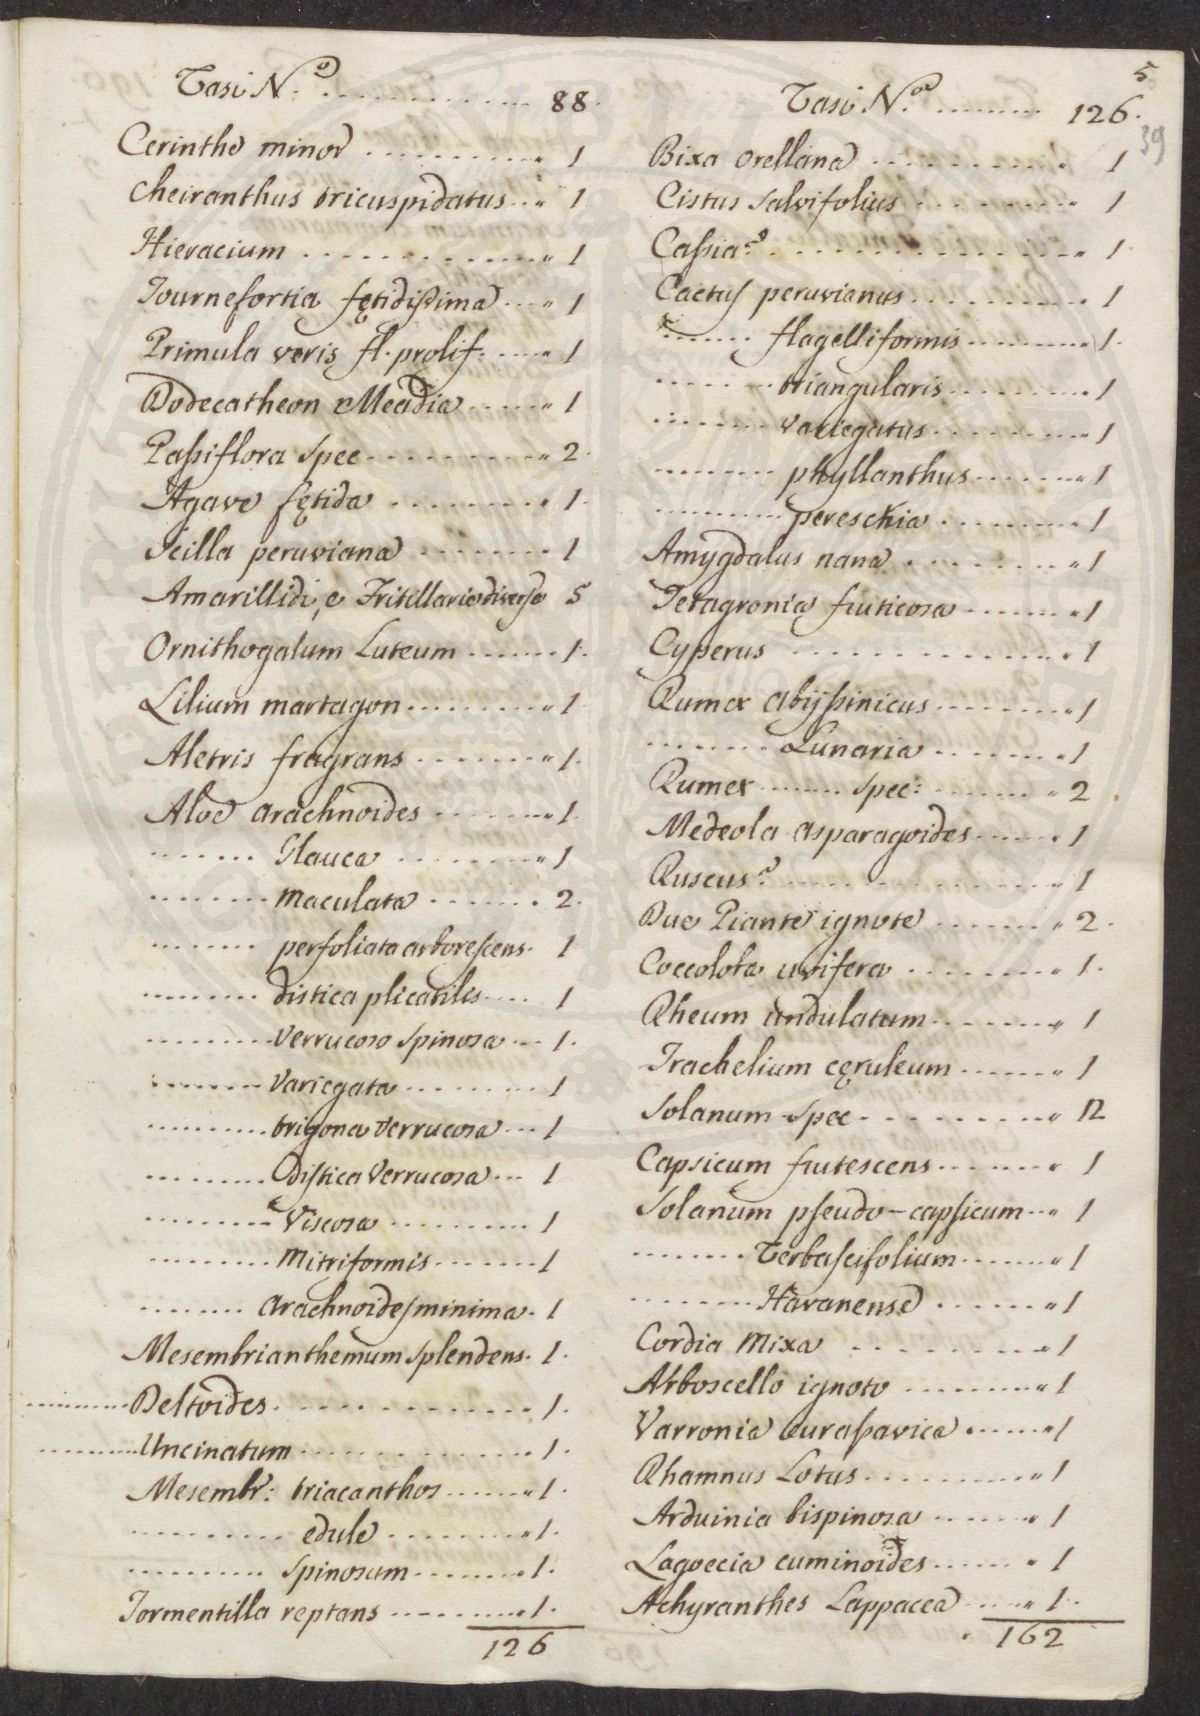 5
39
Vasi N.º ............ 88.
Cerinthe minor .......... " 1
Cheiranthus tricuspidatus .. " 1
Hieracium ............ " 1
Tournefortia fętidissima ... " 1
Primula veris fl. prolif. .... " 1
Dodecatheon Meadia ..... " 1
Passiflora spec ......... " 2
Agave fętida ......... " 1.
Scilla peruviana ........ " 1
Amarillidi, e Fritillarie diverse 5
Ornithogalum Luteum ...... 1.
Lilium martagon ........ " 1
Aletris fragrans ....... " 1.
Aloe arachnoides ...... " 1.
....... Glauca ........ " 1
........ maculata ....... 2.
........ perfoliata arborescens. 1
........ distica plicatilis .... 1
........ Verrucoso spinosa ... 1.
........ Variegata ........ 1
......... trigona verrucosa ... 1
......... distica Verrucosa ... 1
......... Viscosa .......... 1
........ Mitriformis ....... 1
........ arachnoides minima. 1
Mesembrianthemum splendens. 1.
........... Deltoides ............ " 1.
.......... Uncinatum ........... " 1.
Mesembr: triacanthos ...... " 1.
.......... edule ........ " 1.
.......... spinosum ....... " 1.
Tormentilla reptans ........ " 1.
126
Vasi N.º ......... 126.
Bixa orellana .......... " 1
Cistus salvifolius ......... " 1
Cassia? ............. " 1
Cactus peruvianus ......... " 1
....... flagelliformis ......... " 1.
....... triangularis ......... " 1
....... variegatus ......... " 1
........ phyllanthus ....... " 1
......... pereschia ........ " 1
Amygdalus nana ........ " 1
Tetagronia fruticosa ...... " 1
Cyperus ............. " 1
Rumex abijssinicus ........ " 1
........ Lunaria ...... " 1
Rumex ....... spec: ....... " 2
Medeola asparagoides ..... " 1
Ruscus? ............. " 1
Due Piante ignote ....... " 2.
Coccoloba uvifera ........ " 1.
Rheum undulatum ....... " 1
Trachelium cęruleum ...... " 1
Solanum spec ......... " 12
Capsicum frutescens ....... " 1
Solanum pseudo-capsicum .. " 1
........ Verbascifolium ...... " 1
........ Havanense ...... " 1
Cordia Mixa ......... " 1
Arboscello ignoto ........ " 1
Varronia curassavica ...... " 1
Rhamnus Lotus ......... " 1
Arduinia bispinosa ...... " 1
Lagoecia cuminoides ...... " 1
Achyranthes Lappacea .... " 1.
162